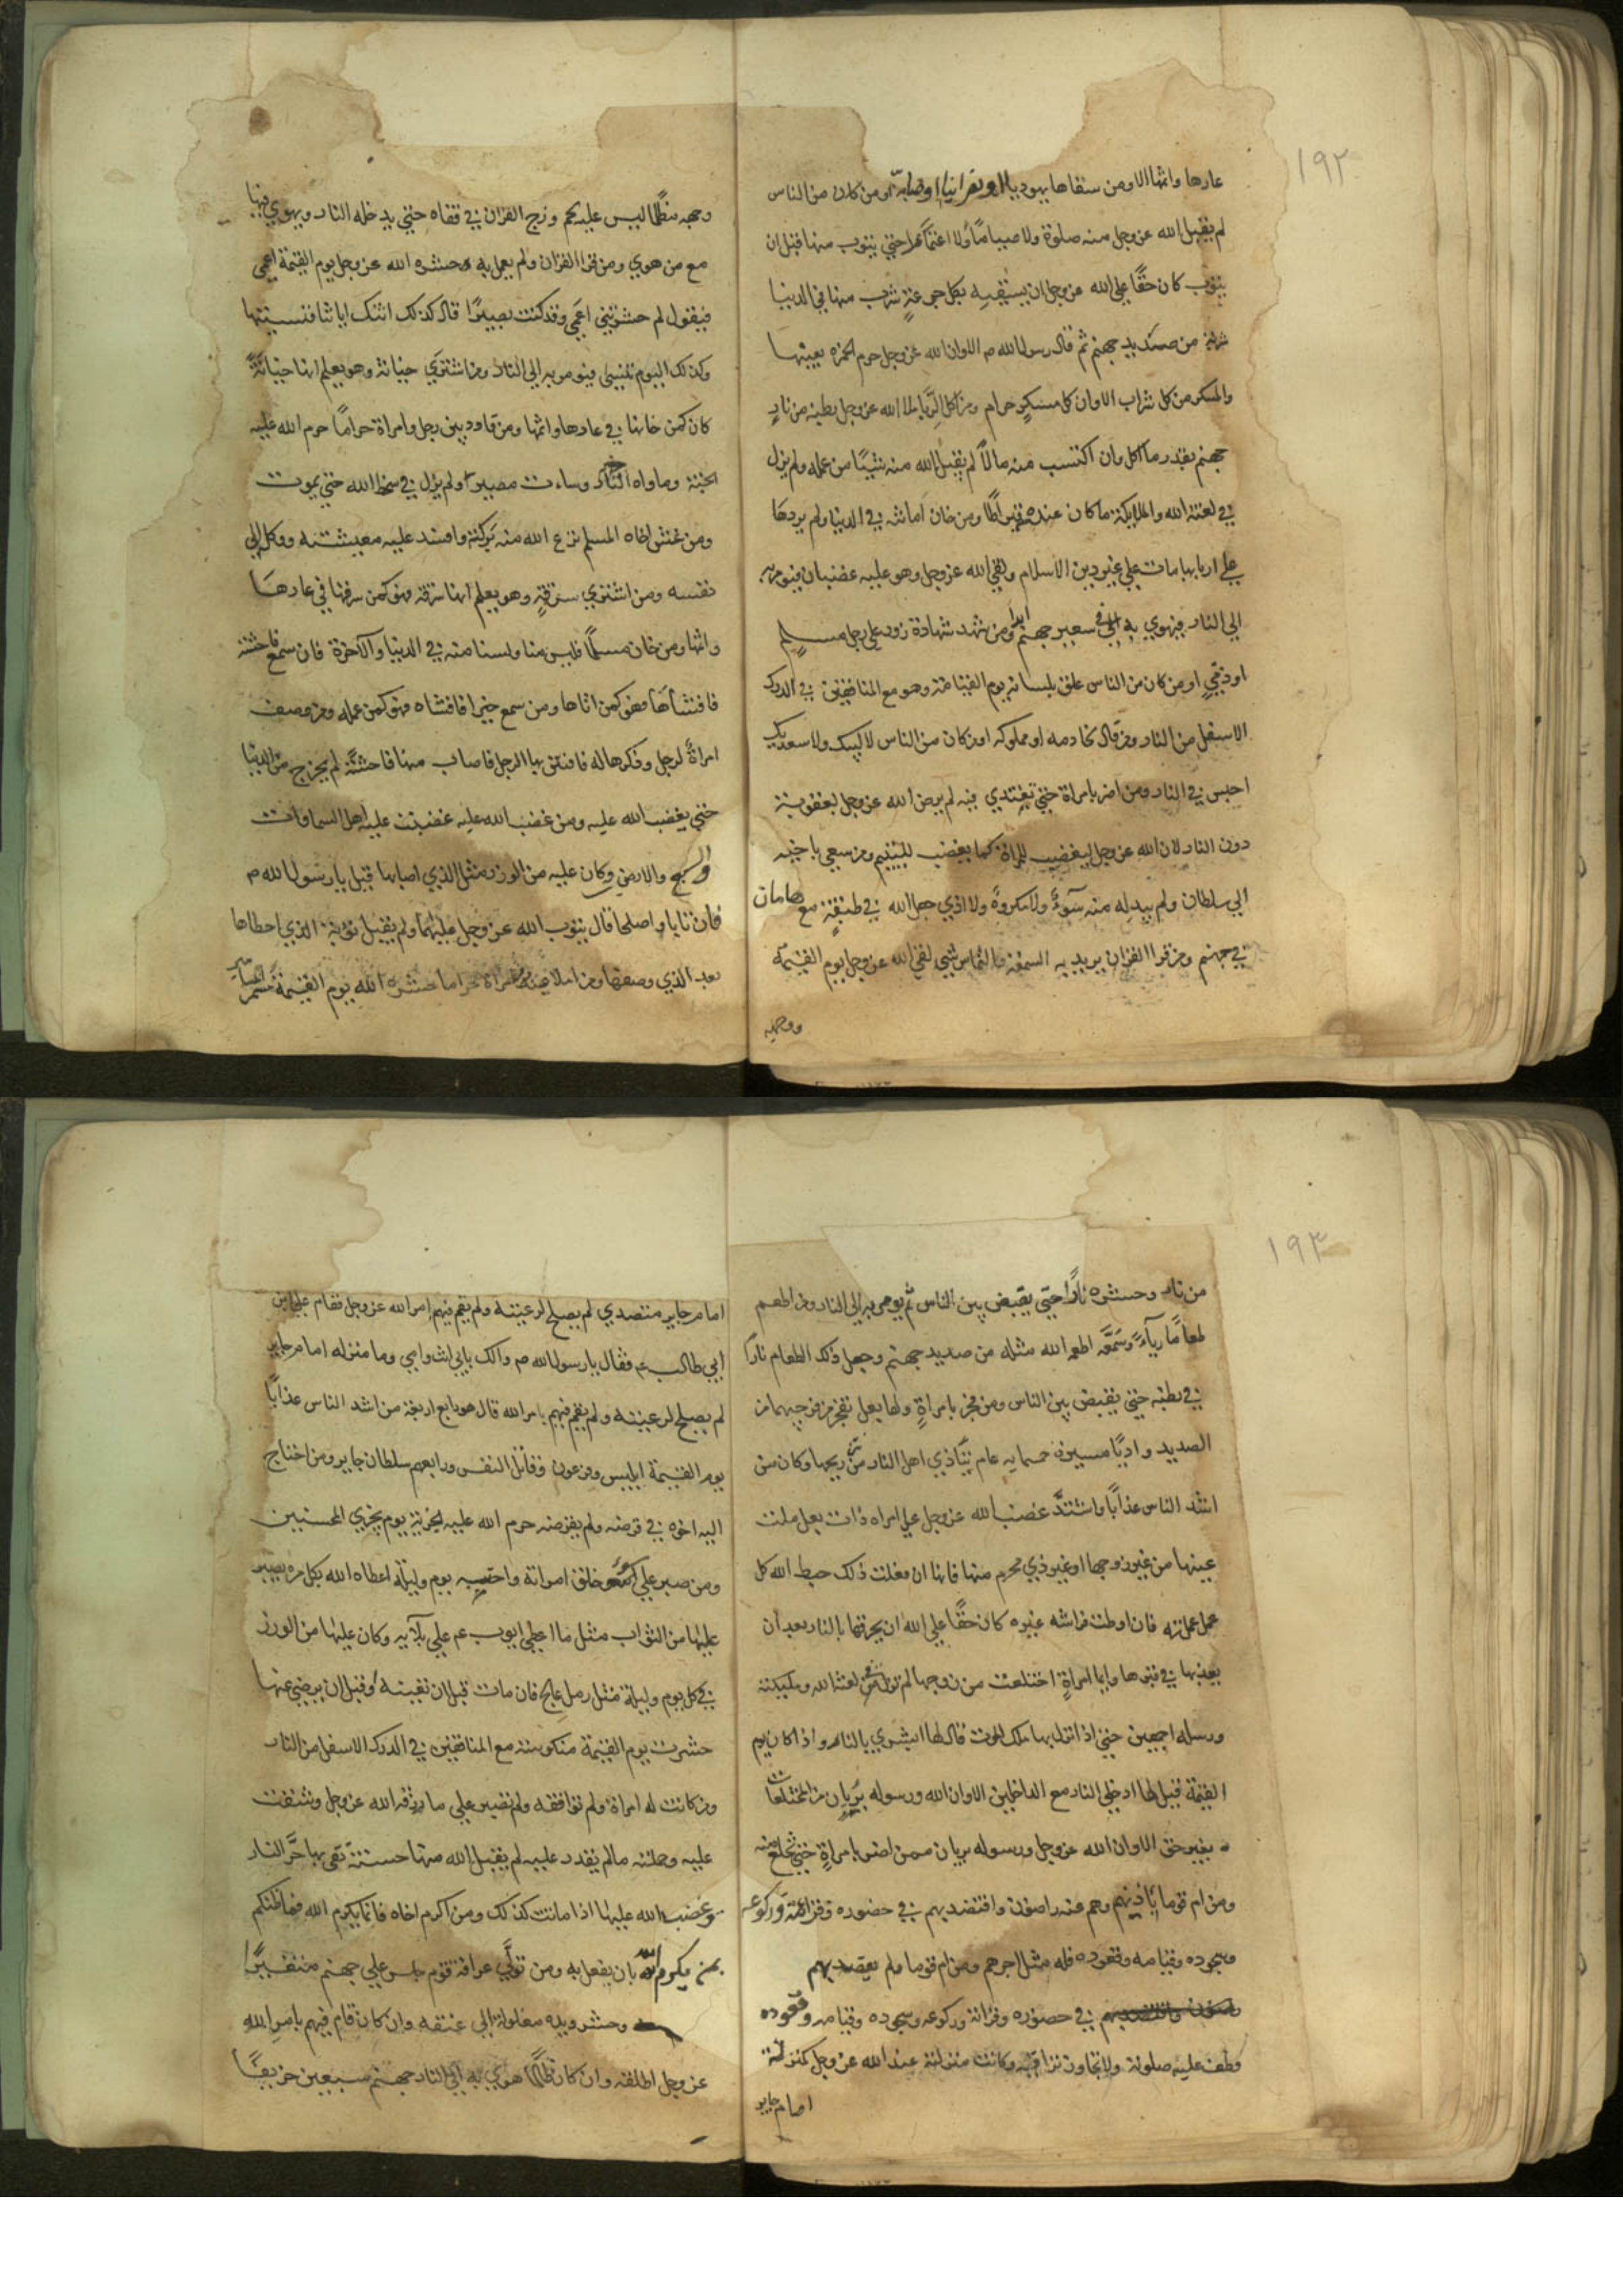 ١٩٢
عارها واثمها الا ومن سقاها يهوديا او نصرانيا او صابئا او من كان من الناس
لم يقبل الله عز وجل منه صلوة ولا صياما ولا اعتمارا حتي يتوب منها فان قبل ان
يتوب كان حقا علي الله عز وجل ان يسقيه بكل جرعة شرب منها في الدنيا
شربة من صديد جهنم ثم قال رسول الله ص الا وان الله عز وجل حرم الخمرة بعينها
والمسكر من كل شراب الا وان كل مسكر حرام ومن اكل الربا ملا الله عز وجل بطنه من نار
جهنم بقدر ما اكل وان اكتسب منه مالا لم يقبل الله منه شيئا من عمله ولم يزل
في لعنة الله والملايكة ما كان عنده قيراطا ومن خان امانته في الدنيا ولم يردها
علي اربابها مات علي غير دين الاسلام ولقي الله عز وجل وهو عليه غضبان فيومر به
الي النار فيهوي به في سعير جهنم ابدا ومن شهد شهادة زور علي رجل مسلم
او ذمي او من كان من الناس علق بلسانه يوم القيامة وهو مع المنافقين في الدرك
الاسفل من النار ومن قال لخادمه او مملوكه او من كان من الناس لا لبيك ولا سعديك
احبس في النار ومن اضر بامراة حتي تفتدي منه لم يرض الله عز وجل بعقوبته
دون النار لان الله عز وجل ليغضب للمراة كما يغضب لليتيم ومن سعي باخيه
الي سلطان ولم يبد له منه سوء ولا مكروه ولا اذي جعله الله في طبقة مع هامان
في جهنم ومن قرا القران يريد به السمعة والتماس شي لقي الله عز وجل يوم القيمة
ووجهه
وجهه مظلما ليس عليه لحم وزج القران في قفاه حتي يدخله النار ويهوي فيها
مع من هوي ومن قرا القران ولم يعمل به حشره الله عز وجل يوم القيمة اعمي
فيقول لم حشرتني اعمي وقد كنت بصيرا قال كذلك اتتك اياتنا فنسيتها
وكذلك اليوم تنسي فيومر به الي النار ومن اشتري خيانة وهو يعلم انها خيانة
كان كمن خانها في عارها واثمها ومن قاود بين رجل وامراة حراما حرم الله عليه
الجنة وماواه النار وساءت مصيرا ولم يزل في سخط الله حتي يموت
ومن غش اخاه المسلم نزع الله منه بركته وافسد عليه معيشته ووكله الي
نفسه ومن اشتري سرقة وهو يعلم انها سرقة فهو كمن سرقها في عارها
واثمها ومن خان مسلما فليس منا ولسنا منه في الدنيا والاخرة فان سمع فاحشة
فافشاها فهو كمن اتاها ومن سمع خيرا فافشاه فهو كمن عمله ومن وصف
امراة لرجل وذكرها له فافتتن بها الرجل فاصاب منها فاحشة لم يخرج من الدنيا
حتي يغضب الله عليه ومن غضب الله عليه غضبت عليه اهل السماوات
السبع والارض وكان عليه من الوزر مثل الذي اصابها قيل يا رسول الله ص
فان تابا واصلحا قال يتوب الله عز وجل عليهما ولم يقبل توبة الذي
بعد الذي وصفها ومن املا عينه من امراة حراما حشره الله يوم القيمة
١٩٣
من نار وحشره نارا حتي يقبض بين الناس ثم يومر به الي النار ومن اطعم
طعاما رياء وسمعة اطعمه الله مثله من صديد جهنم وجعل ذلك الطعام نارا
في بطنه حتي يقبض بين الناس ومن فجر بامراة ولها بعل تفجر من فرجيهما من
الصديد واديا مسيرة خمسمايه عام يتاذي اهل النار من نتن ريحها وكان من
اشد الناس عذابا واشتد غضب الله عز وجل علي امراه ذات بعل ملت
عينها من غير زوجها او غير ذي محرم منها فانها ان فعلت ذلك حبط الله كل
عمل عملته فان اوطت فراشه غيره كان حقا علي الله ان يحرقها بالنار بعد ان
يعذبها في قبرها وايما امراة اختلعت من زوجها لم تزل في لعنة الله وملايكته
ورسله اجمعين حتي اذا نزل بها ملك الموت قال لها ابشري بالنار واذا كان يوم
القيمة قيل لها ادخلي النار مع الداخلين الا وان الله ورسوله بريان من المختلعات
بغير حق الا وان الله عز وجل ورسوله بريان ممن اضر بامراة حتي تختلع منه
ومن ام قوما باذنهم وهم عنه راضون واقتصد بهم في حضوره وقراته وركوعه
وسجوده وقيامه وقعوده فله مثل اجرهم ومن ام قوما ولم يقصد بهم
في حضوره وقراته وركوعه وسجوده وقيامه وقعوده
ردت عليه صلوته ولا تجاوز تراقيه وكانت منزلته عند الله عز وجل كمنزلة
امام جاير
امام جاير متصدي لم يصلح لرعيته ولم يقم فيهم امر الله عز وجل فقام علي بن
ابي طالب عم فقال يا رسول الله ص بابي انت وامي وما منزله امام جاير
لم يصلح لرعيته ولم يقم فيهم بامر الله قال هو رابع اربعة من اشد الناس عذابا
يوم القيمة ابليس وفرعون وقاتل النفس ورابعهم سلطان جاير ومن احتاج
اليه اخوه في قرضه ولم يقرضه حرم الله عليه الجنة يوم يجزي المحسنين
ومن صبر علي سو خلق امراتة واحتسبه يوم وليلة اعطاه الله بكل مره يصبر
عليها من الثواب مثل ما اعطي ايوب عم علي بلايه وكان عليها من الوزر
في كل يوم وليلة مثل رمل عالج فان مات قبل ان تعينه وقبل ان يرضي عنها
حشرت يوم القيمة منكوسة مع المنافقين في الدرك الاسفل من النار
ومن كانت له امراة ولم توافقه ولم تصبر علي ما رزقه الله عز وجل وشقت
عليه وحملته مالم يقدر عليه لم يقبل الله منها حسنة تقي بها حر النار
وغضب الله عليها اذا ماتت كذلك ومن اكرم اخاه فانما يكرم الله فما ظنكم
بمن يكرم الله بان يفعل به ومن تولي عرافة قوم حبس علي جهنم
وحشر ويده مغلولة الي عنقه وان كان قام فيهم بامر الله
عز وجل اطلقه وان كان ظالما هوي به الي النار جهنم سبعين خريفا